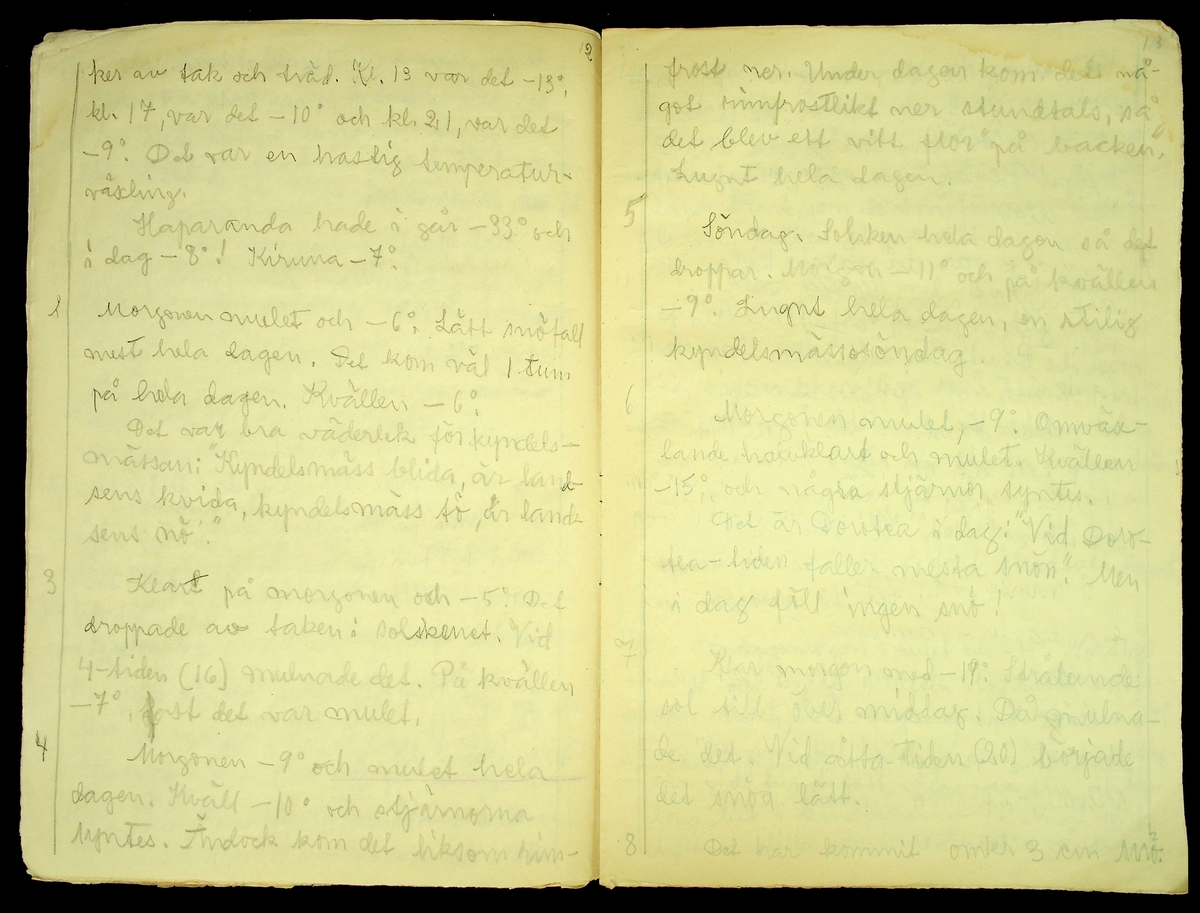 12
ker av tak och träd. Kl. 13 var det -13°,
kl. 17, var det -10° och kl. 21, var det
-9°. Det var en hastig temperatur-
växling.
Haparanda hade i går -33° och
i dag -8°! Kiruna -7°.
1 Morgonen mulet och -6°. Lätt snöfall
mest hela dagen. Det kom väl 1 tum
på hela dagen. Kvällen -6°.
Det var bra väderlek för kyndels-
mässan: "Kyndelsmäss blida, är land-
sens kvida, kyndelsmäss tö, är land-
sens nö."
3 Klart på morgonen och -5°. Det
droppade av taken i solskenet. Vid
4-tiden (16) mulnade det. På kvällen
-7°, fast det var mulet.
4 Morgonen -9° och mulet hela
dagen. Kväll -10° och stjärnorna
syntes. Ändock kom det liksom rim-
13
frost ner. Under dagen kom det nå-
got rimfrostlikt ner stundtals, så
det blev ett vitt "flor" på backen.
Lugnt hela dagen.
5 Söndag. Solsken hela dagen så det
droppar. Morgon -11° och på kvällen
-9°. Lugnt hela dagen, en stilig
kyndelsmässosöndag
6 Morgonen mulet, -9°. Omväx-
lande halvklart och mulet. Kvällen
-15°, och några stjärnor syntes.
Det är Dorotea i dag: "Vid Doro-
tea-tiden faller mesta snön". Men
i dag föll ingen snö!
7 Klar morgon med -19°. Strålande
sol till över middag. Då mulna-
de det. Vid åtta-tiden (20) började
det snöa lätt.
8 Det har kommit omkr 3 cm snö.